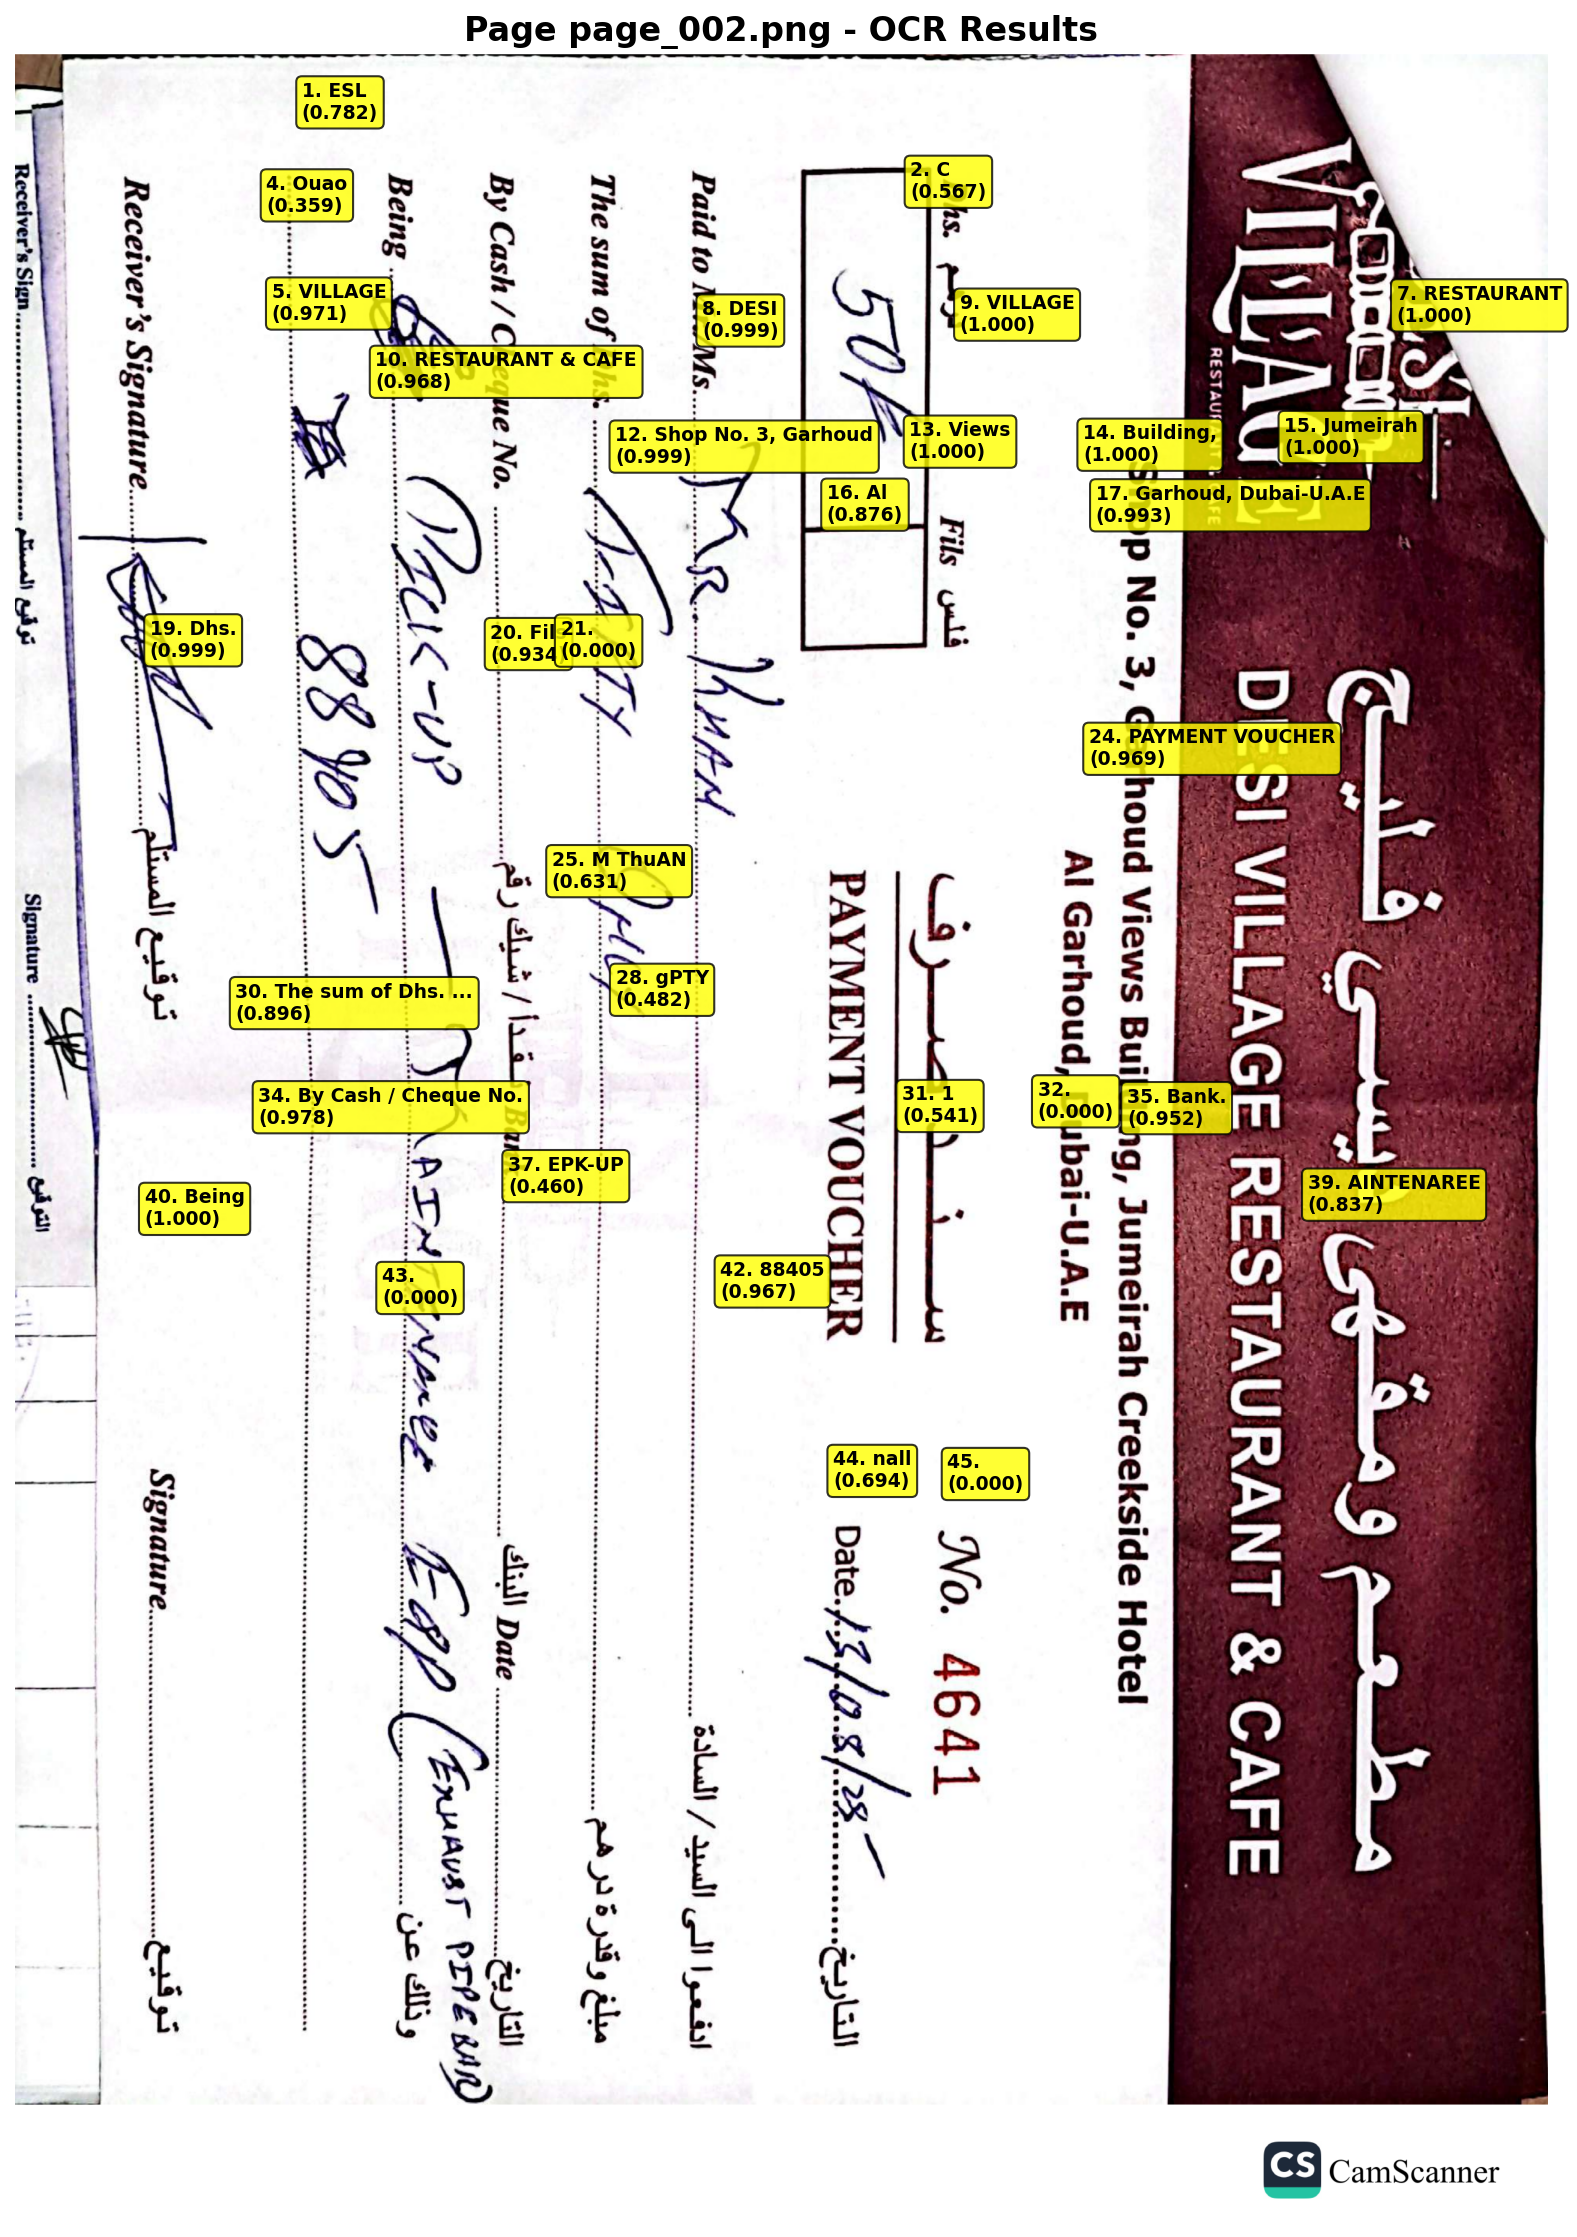 Page page_002.png - OCR Results
1. ESL
(0.782)
2. C
(0.567)
4. Ouao
(0.359)
5. VILLAGE
(0.971)
7. RESTAURANT
(1.000)
8. DESI
(0.999)
9. VILLAGE
(1.000)
10. RESTAURANT & CAFE
(0.968)
12. Shop No. 3, Garhoud
(0.999)
13. Views
(1.000)
14. Building,
(1.000)
15. Jumeirah
(1.000)
16. Al
(0.876)
17. Garhoud, Dubai-U.A.E
(0.993)
19. Dhs.
(0.999)
20. Fil
(0.934
21.
(0.000)
24. PAYMENT VOUCHER
(0.969)
25. M ThuAN
(0.631)
28. gPTY
(0.482)
30. The sum of Dhs. ...
(0.896)
31. 1
(0.541)
32.
(0.000)
34. By Cash / Cheque No.
(0.978)
35. Bank.
(0.952)
37. EPK-UP
(0.460)
39. AINTENAREE
(0.837)
40. Being
(1.000)
42. 88405
(0.967)
43.
(0.000)
44. nall
(0.694)
45.
(0.000)
VILLAGE
مطعم ومقهى ديسي فليج
DESI VILLAGE RESTAURANT & CAFE
Shop No. 3, Garhoud Views Building, Jumeirah Creekside Hotel
Al Garhoud, Dubai-U.A.E
Dhs. درهم Fils فلس
50/
سند صرف
PAYMENT VOUCHER
No. 4641
Date 13/08/25 التاريخ
Paid to Mr./Ms. MR. KHAN ادفعوا الى السيد / السادة
The sum of Dhs. FIFTY ONLY مبلغ وقدرة درهم
By Cash / Cheque No. نقدأ / شيك رقم Bank البنك Date التاريخ
Being PICK-UP MAINTENANCE (EXHAUST PIPE وذلك عن
88405
Receiver's Signature توقيع المستلم Signature توقيع
Receiver's Sign توقيع المستلم Signature التوقيع
CS CamScanner